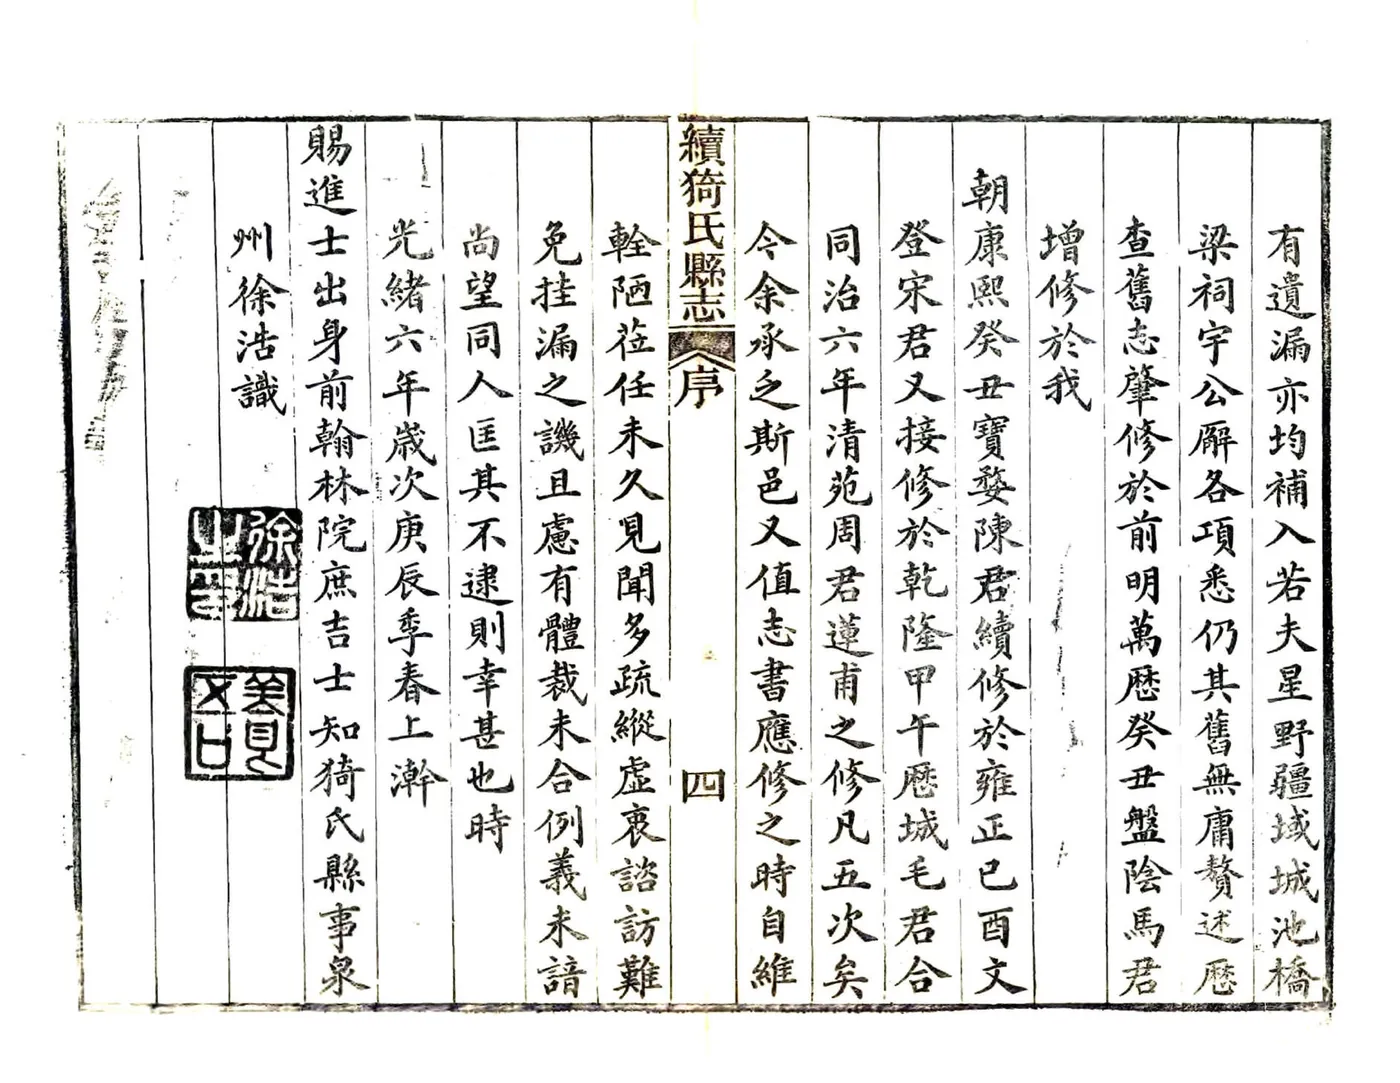 有遺漏亦均補入若夫星野疆域城池橋
梁祠宇公廨各項悉仍其舊無庸贅述歷
查舊志肇修於前明萬歷癸丑盤陰馬君
增修於我
朝康熙癸丑寶婺陳君續修於雍正己酉文
登宋君又接修於乾隆甲午歷城毛君合
同治六年清苑周君蓮甫之修凡五次矣
今余承乏斯邑又值志書應修之時自維
續猗氏縣志
序
四
輇陋莅任未久見聞多疏縱虛衷諮訪難
免挂漏之譏且慮有體裁未合例義未諳
尚望同人匡其不逮則幸甚也時
光緒六年歲次庚辰季春上澣
賜進士出身前翰林院庶吉士知猗氏縣事泉
州徐浩識
徐浩之印